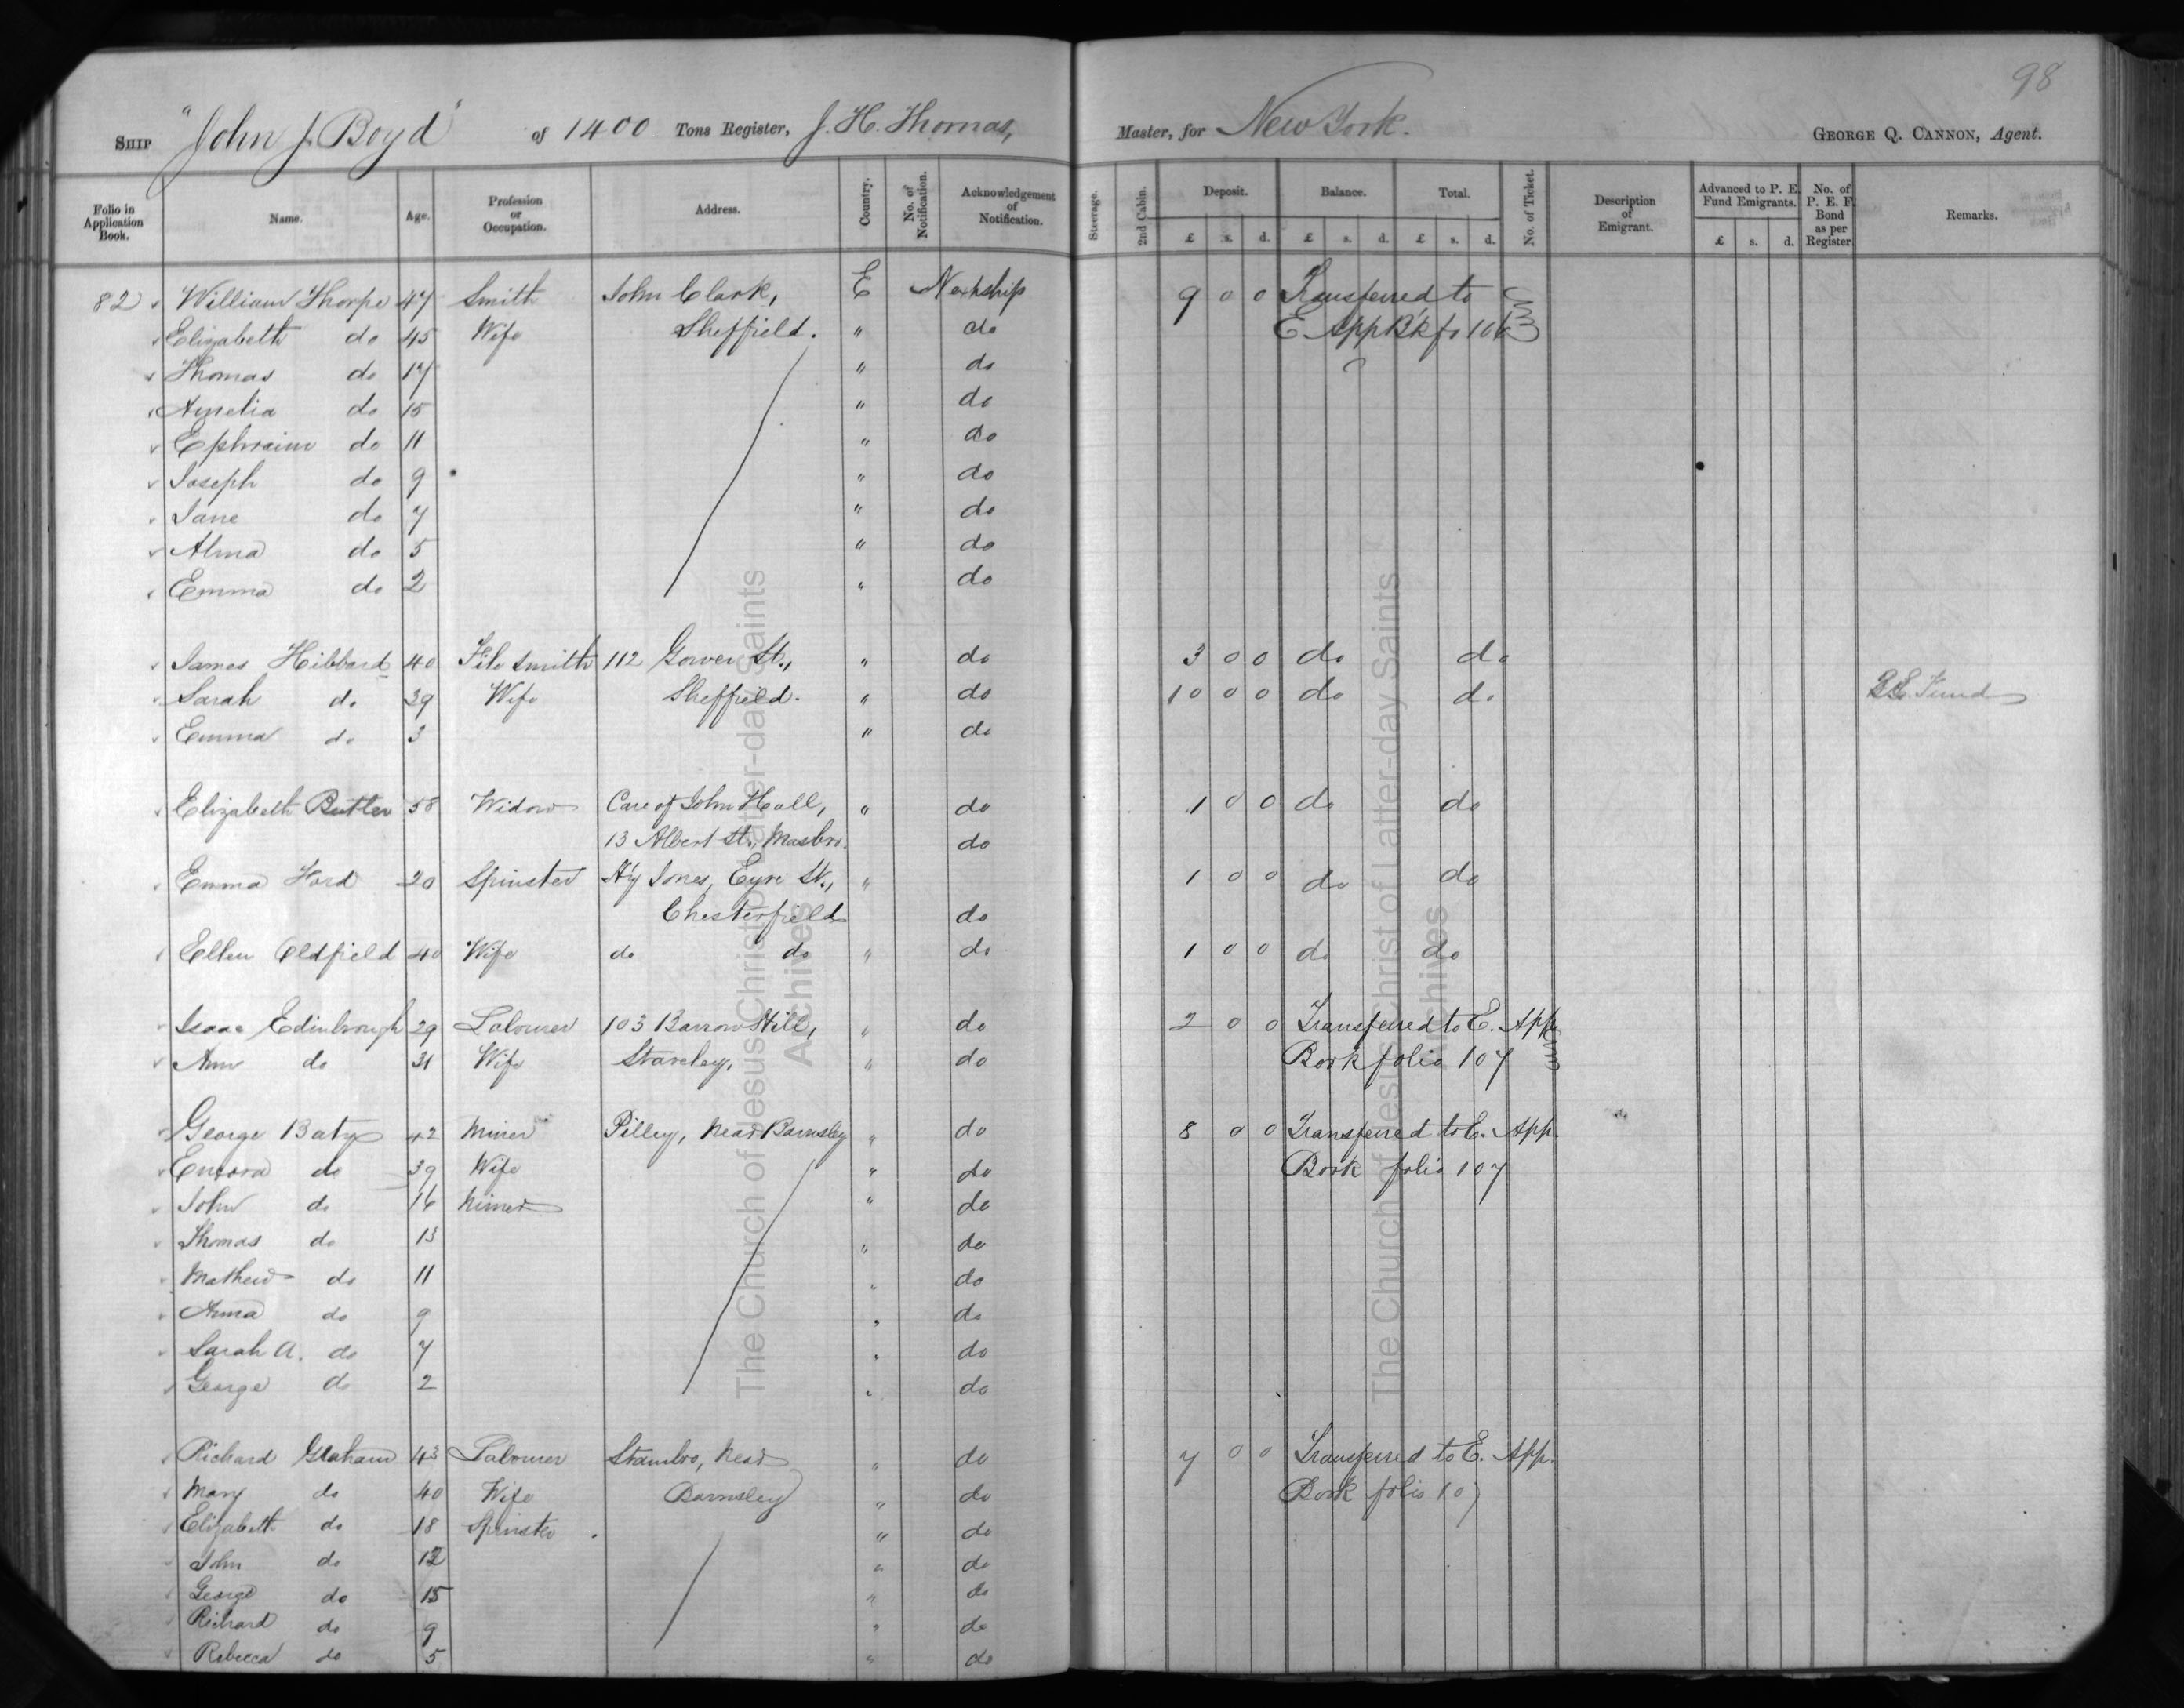 98
SHIP "John J. Boyd" of 1400 Tons Register, J. H. Thomas, Master, for New York. GEORGE Q. CANNON, Agent.
Folio in Application Book. Name. Age. Profession or Occupation. Address. Country. No. of Notification. Acknowledgement of Notification. Steerage. 2nd Cabin. Deposit. Balance. Total. No. of Ticket. Description of Emigrant. Advanced to P. E. Fund Emigrants. No. of P. E. F. Bond as per Register. Remarks.
£ s. d. £ s. d. £ s. d. £ s. d.
82 William Thorpe 47 Smith John Clark, E Nextship 9 0 0 Transferred to
Elizabeth do 45 Wife Sheffield. " do E App B'k fo 106
Thomas do 17 " do
Amelia do 15 " do
Ephraim do 11 " do
Joseph do 9 " do
Jane do 7 " do
Alma do 5 " do
Emma do 2 " do
James Hibbard 40 File Smith 112 Gower St., " do 3 0 0 do do
Sarah do 39 Wife Sheffield. " do 10 0 0 do do Fund
Emma do 3 " do
Elizabeth Butler 58 Widow Care of John Hall, " do 1 0 0 do do
13 Albert St., Masbro. do
Emma Ford 20 Spinster H'y Jones, Eyre St., " 1 0 0 do do
Chesterfield do
Ellen Oldfield 40 Wife do do " do 1 0 0 do do
Isaac Edinbrough 29 Labourer 103 Barrow Hill, " do 2 0 0 Transferred to E. App
Ann do 31 Wife Staveley, " do Book folio 107
George Baty 42 Miner Pilley, Near Barnsley " do 8 0 0 Transferred to E. App.
do 39 Wife " do Book folio 107
John do 16 Miner " do
Thomas do 13 " do
Mathew do 11 " do
Anna do 9 " do
Sarah A. do 7 " do
George do 2 " do
Richard Graham 43 Labourer Stambro, Near " do 7 0 0 Transferred to E. App.
Mary do 40 Wife Barnsley " do Book folio 107
Elizabeth do 18 Spinster " do
John do 12 " do
George do 15 " do
Richard do 9 " do
Rebecca do 5 " do
The Church of Jesus Christ of Latter-day Saints
Archives
The Church of Jesus Christ of Latter-day Saints
Archives